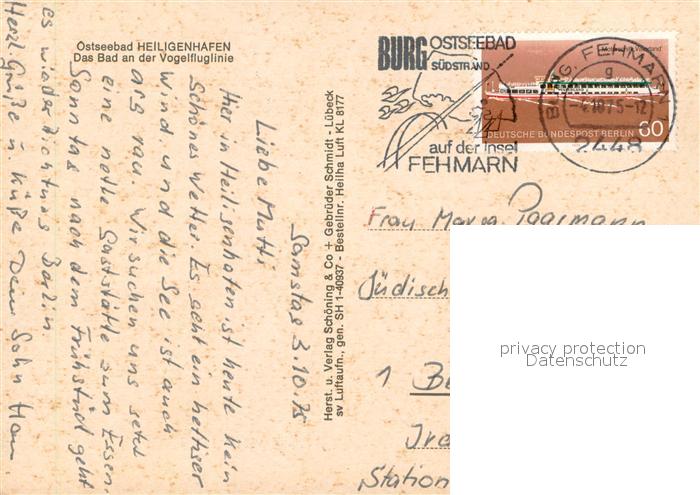 Ostseebad HEILIGENHAFEN
Das Bad an der Vogelfluglinie
Samstag 3.10.75
Liebe Mutti
Hier in Heiligenhafen ist heute kein
schönes Wetter. Es geht ein heftiger
Wind und die See ist auch
arg rau. Wir suchen uns jetzt
eine nette Gaststätte zum Essen.
Sonntag nach dem Frühstück geht
es wieder Richtung Berlin.
Herzl. Grüße u. Küße Dein Sohn
Herst. u. Verlag Schöning & Co + Gebrüder Schmidt - Lübeck
sv Luftaufn., gen. SH 1-40937 - Bestellnr. Heilha Luft KL 8177
BURG OSTSEEBAD
SÜDSTRAND
auf der Insel
FEHMARN
BURG, FEHMARN
g
2448
DEUTSCHE BUNDESPOST BERLIN 60
Frau
Jüdisch
1 Be
Station
privacy protection
Datenschutz